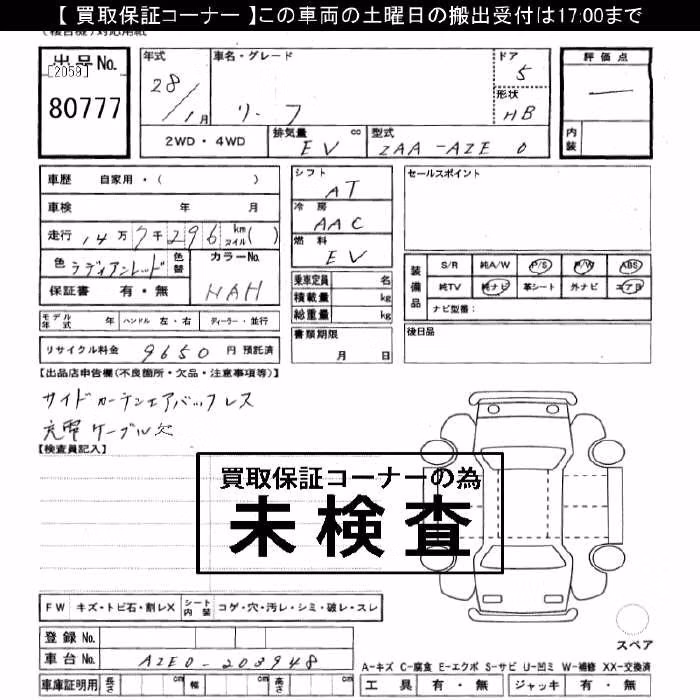 【 買取保証コーナー 】この車両の土曜日の搬出受付は17:00まで
(複合機)対応用紙
出品No.
[2059]
80777
年式
28/1月
車名・グレード
リーフ
ドア
5
形状
HB
評価点
内装
2WD・4WD
排気量 cc
EV
型式
ZAA-AZE0
車歴 自家用・( )
車検 年 月
走行 14万7千296 km マイル( )
色 ラディアントレッド 色替
カラーNo.
NAH
保証書 有・無
シフト
AT
冷房
AAC
燃料
EV
乗車定員 名
積載量 kg
総重量 kg
セールスポイント
装備品
S/R 純A/W P/S P/W ABS
純TV 純ナビ 革シート 外ナビ エアB
ナビ型番：
モデル年式 年 ハンドル 左・右 ディーラー・並行
書類期限
月 日
後日品
リサイクル料金 9650 円 預託済
【出品店申告欄(不良箇所・欠品・注意事項等)】
サイドカーテンエアバックレス
充電ケーブル欠
【検査員記入】
買取保証コーナーの為
未検査
FW キズ・トビ石・割レX シート内装 コゲ・穴・汚レ・シミ・破レ・スレ
登録 No.
車台 No. AZE0-203948
スペア
A-キズ C-腐食 E-エクボ S-サビ U-凹ミ W-補修 XX-交換済
車庫証明用 長さ cm 幅 cm 高さ cm
工具 有・無 ジャッキ 有・無